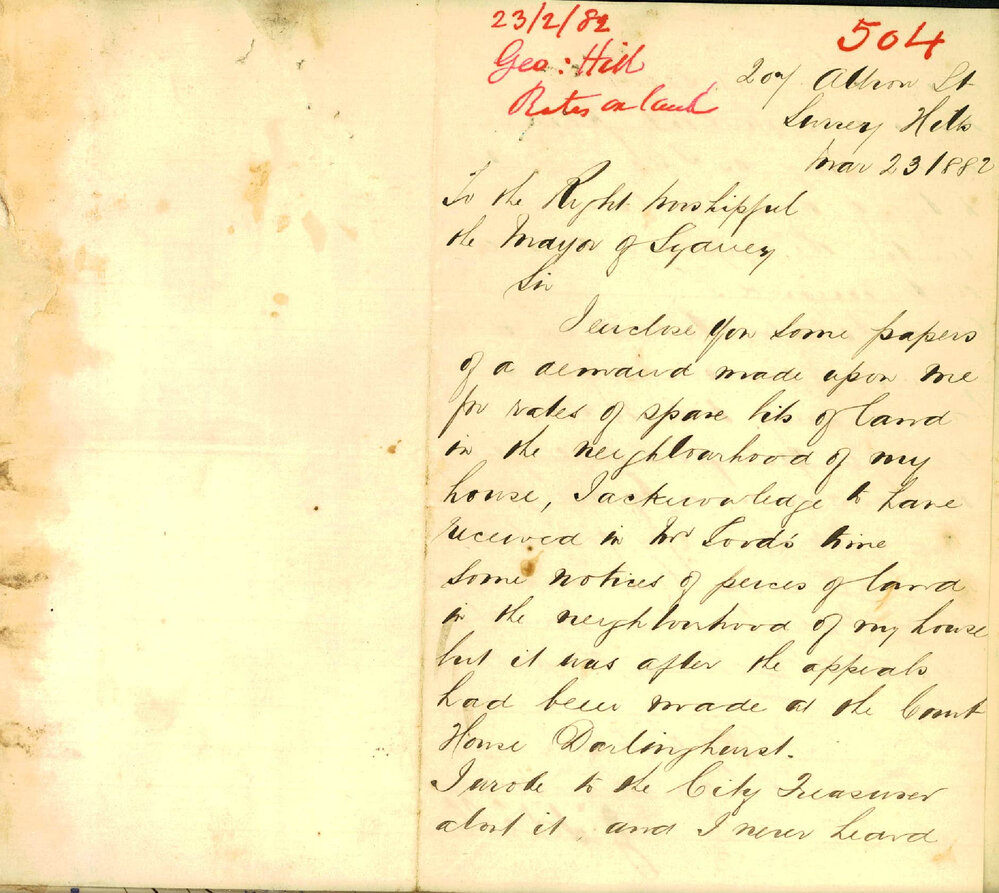 23/2/82
504
Geo: Hill
Rates on land
207 Albion St
Surrey Hills
Mar 23 1882
To the Right Worshipful
the Mayor of Sydney
Sir
I enclose you some papers
of a demand made upon me
for rates of spare bits of land
in the neighbourhood of my
house, I acknowledge to have
received in Mr Lord's time
some notices of peices of land
in the neighbourhood of my house
but it was after the appeals
had been made at the Court
House Darlinghurst.
I wrote to the City Treasurer
about it, and I never heard